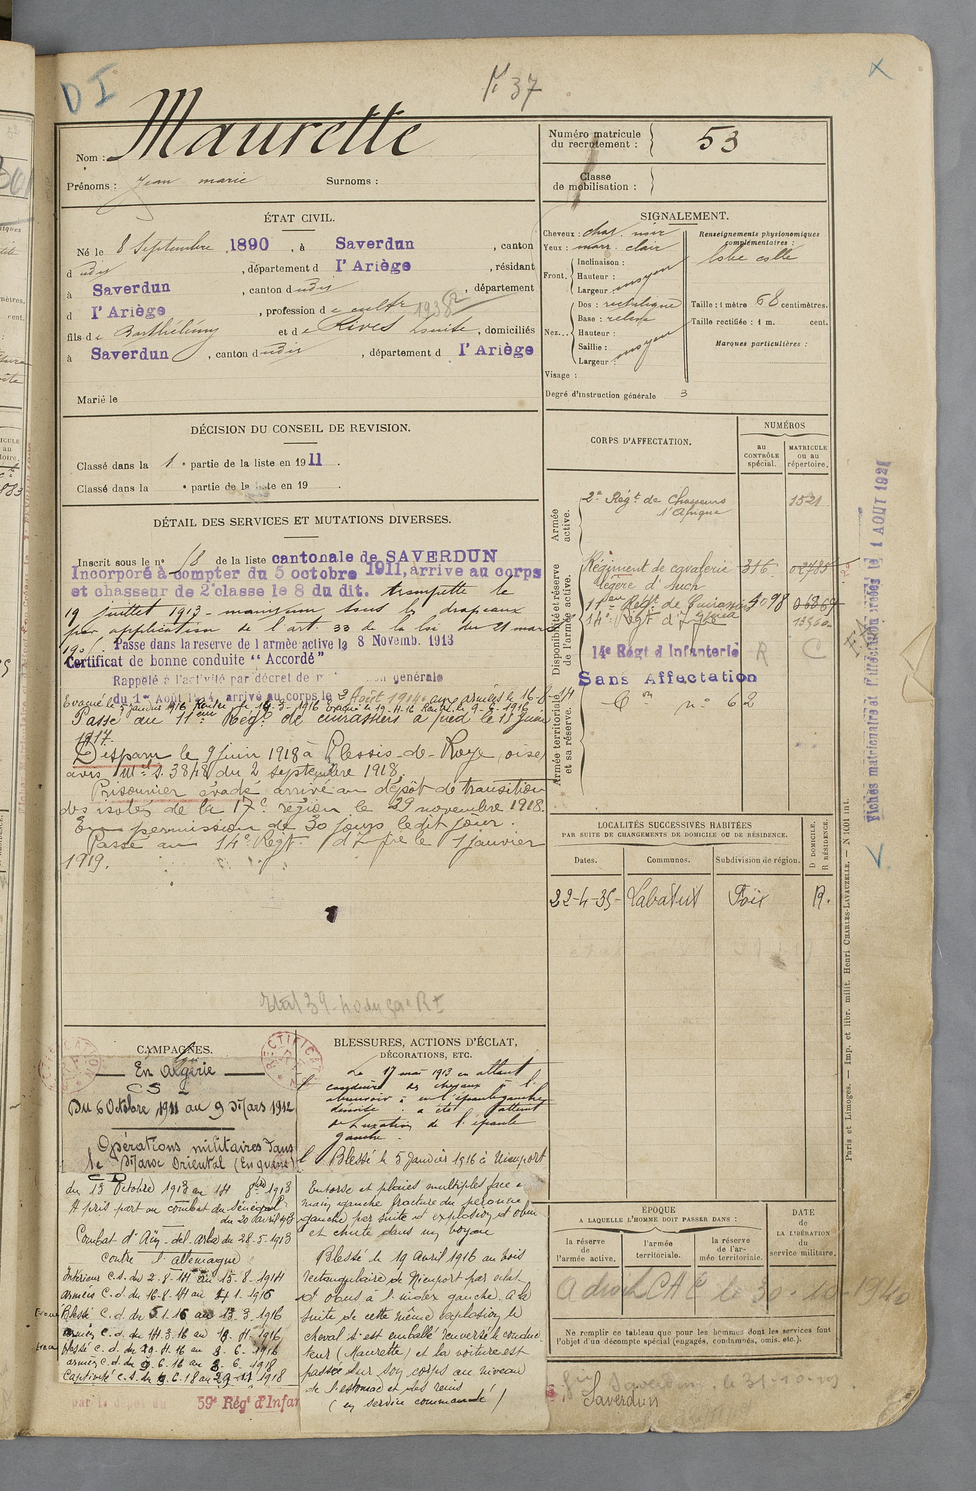 D I
N° 37
Maurette
Nom :
Prénoms : Jean marie Surnoms :
Numéro matricule
du recrutement : 53
Classe
de mobilisation :
ÉTAT CIVIL.
Né le 8 Septembre 1890, à Saverdun, canton
d udit, département d l'Ariège, résidant
à Saverdun, canton dudit, département
d l'Ariège, profession de cultr 1938
fils de Barthélémy et de Rives Louise, domiciliés
à Saverdun, canton dudit, département d l'Ariège
Marié le
SIGNALEMENT.
Cheveux : chat. noir
Yeux : marr. clair
Front. Inclinaison :
Hauteur : moyen
Largeur :
Nez. Dos : rectiligne
Base : relevé
Hauteur :
Saillie : moyen
Largeur :
Visage :
Degré d'instruction générale 3
Renseignements physionomiques
complémentaires :
lobe collé
Taille : 1 mètre 68 centimètres.
Taille rectifiée : 1 m. cent.
Marques particulières :
DÉCISION DU CONSEIL DE REVISION.
Classé dans la 1e partie de la liste en 1911.
Classé dans la e partie de la liste en 19 .
DÉTAIL DES SERVICES ET MUTATIONS DIVERSES.
Inscrit sous le n° 18 de la liste cantonale de SAVERDUN
Incorporé à compter du 5 octobre 1911, arrive au corps
et chasseur de 2e classe le 8 du dit. trompette le
19 juillet 1913 - maintenu sous les drapeaux
par application de l'art 33 de la loi du 21 mars
190
Passé dans la reserve de l armée active le 8 Novemb. 1913
Certificat de bonne conduite “ Accordé ”
Rappelé à l'activité par décret de générale
du 1er Août 1914, arrivé au corps le 3 Août 1914. aux armées le 16-8-14
Evacué le 5 janvier 1916 Rentré le 14-3-1916 Evacué le 19-4-16 Rentré le 9-6-1916
Passé au 11eme Régt de cuirassiers à pied le 15 Juin
1917
Disparu le 9 Juin 1918 à Plessis-de-Roye (oise)
avis Mel S. 3848 du 2 septembre 1918.
Prisonnier évadé arrivé au dépôt de transition
des isolés de la 17e région le 29 novembre 1918.
En permission de 30 jours ledit jour.
Passé au 14e Régt d'Infie le 1 janvier
1919.
CORPS D'AFFECTATION.
NUMÉROS
au
CONTRÔLE
spécial.
MATRICULE
ou au
répertoire.
Armée
active.
2e Régt de Chasseurs 1521
d'Afrique
Disponibilité et réserve
de l'armée active.
Régiment de cavalerie 316 02785
légère d'Auch
11eme Régt de Cuirassiers 5098
14e Régt d'Infie 13960
14e Régt d Infanterie R C
Sans Affectation
Armée territoriale
et sa réserve.
Con n° 62
Fiches matriculaire et d'affectation créées le 1 AOUT 1921
LOCALITÉS SUCCESSIVES HABITÉES
PAR SUITE DE CHANGEMENTS DE DOMICILE OU DE RÉSIDENCE.
Dates.
Communes.
Subdivision de région.
D DOMICILE.
R RÉSIDENCE.
22-4-35- Labatut Foix R.
CAMPAGNES.
En Algérie
C S
Du 6 Octobre 1911 au 9 Mars 1912
Opérations militaires dans
le Maroc Oriental (En guerre)
du 13 Octobre 1913 au 14 1913
A pris part au combat du Sénégal
du 20 avril 1913
Combat d'Aïn-del-arba du 28-5-1913
contre l'allemagne
Intérieur C.S. du 2-8-14 au 15-8-1914
armées C.d. du 16-8-14 au 4 1.1916
Blessé C.d. du 5 1 16 au 13 3.1916
armées C.d. du 14 3 16 au 19.4.1916
Blessé C.d. du 20.4.16 au 8.6.1916
armées C.d. du 9.6.16 au 8.6.1918
Captivité C.S. du 9.6.18 au 29.11 1918
par le dépôt du 59e Régt d'Infan
BLESSURES, ACTIONS D'ÉCLAT,
DÉCORATIONS, ETC.
Le 17 mai 1913 en allant
conduire des chevaux à l'
abreuvoir
a été atteint
de Luxation de l'épaule
gauche.
Blessé le 5 Janvier 1916 à Nieuport
Entorse et plaies multiples face
main gauche fracture du péroné
gauche par suite d'explosion d'obus
et chute dans un boyau
Blessé le 19 avril 1916 au bois
rectangulaire de Nieuport par éclat
d'obus à l'index gauche. A la
suite de cette même explosion le
cheval s'est emballé renversé le conduc-
teur (Maurette) et la voiture est
passée sur son corps au niveau
de l'estomac et des reins
(en service commandé)
ÉPOQUE
A LAQUELLE L'HOMME DOIT PASSER DANS :
la réserve
de l'armée active.
l'armée
territoriale.
la réserve
de l'ar-
mée territoriale.
DATE
de
LA LIBÉRATION
du
service militaire.
A droit C A C le 30-10-1940
Ne remplir ce tableau que pour les hommes dont les services font
l'objet d'un décompte spécial (engagés, condamnés, omis. etc.).
Saverdun
Paris et Limoges. — Imp. et libr. milit. Henri CHARLES-LAVAUZELLE. — N 1001 int.